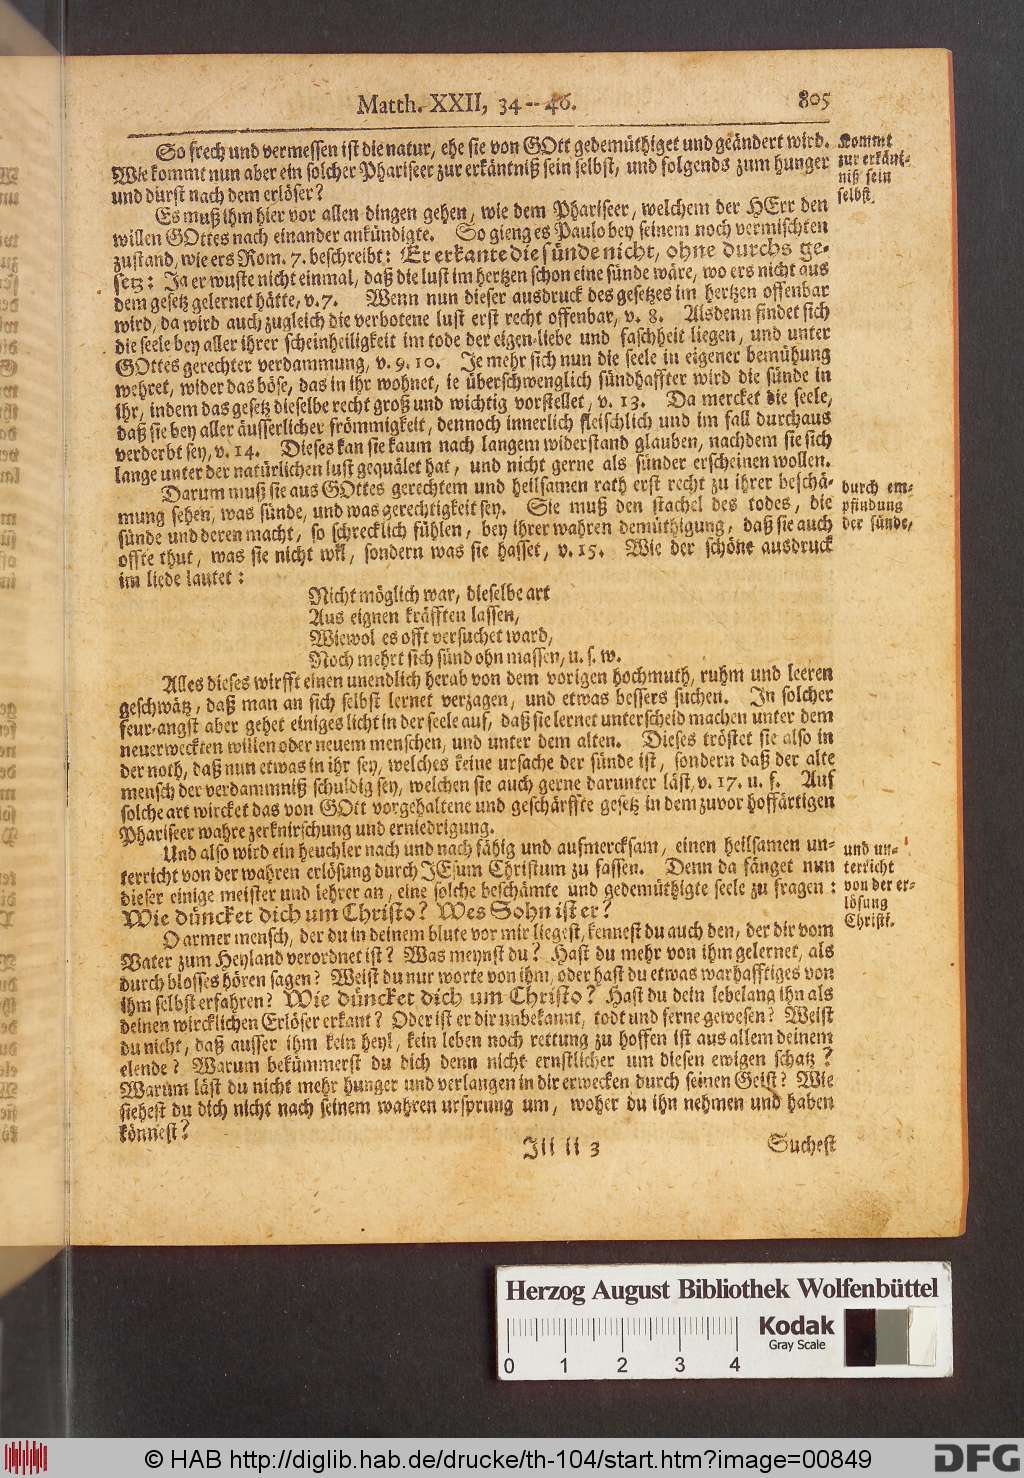 Matth. XXII, 34--46. 805
So frech und vermessen ist die natur, ehe sie von GOtt gedemüthiget und geändert wird.
Wie kommt nun aber ein solcher Phariseer zur erkäntniß sein selbst, und folgends zum hunger
und durst nach dem erlöser?
Kommt
zur erkänt-
niß sein
selbst,
Es muß ihm hier vor allen dingen gehen, wie dem Phariseer, welchem der HErr den
willen GOttes nach einander ankündigte. So gieng es Paulo bey seinem noch vermischten
zustand, wie ers Rom. 7. beschreibt: Er erkante die sünde nicht, ohne durchs ge-
setz: Ja er wuste nicht einmal, daß die lust im hertzen schon eine sünde wäre, wo ers nicht aus
dem gesetz gelernet hätte, v. 7. Wenn nun dieser ausdruck des gesetzes im hertzen offenbar
wird, da wird auch zugleich die verbotene lust erst recht offenbar, v. 8. Alsdenn findet sich
die seele bey aller ihrer scheinheiligkeit im tode der eigen-liebe und faschheit liegen, und unter
GOttes gerechter verdammung, v. 9. 10. Je mehr sich nun die seele in eigener bemühung
wehret, wider das böse, das in ihr wohnet, ie überschwenglich sündhaffter wird die sünde in
ihr, indem das gesetz dieselbe recht groß und wichtig vorstellet, v. 13. Da mercket die seele,
daß sie bey aller äusserlicher frömmigkeit, dennoch innerlich fleischlich und im fall durchaus
verderbt sey, v. 14. Dieses kan sie kaum nach langem widerstand glauben, nachdem sie sich
lange unter der natürlichen lust gequälet hat, und nicht gerne als sünder erscheinen wollen.
Darum muß sie aus GOttes gerechtem und heilsamen rath erst recht zu ihrer beschä-
mung sehen, was sünde, und was gerechtigkeit sey. Sie muß den stachel des todes, die
sünde und deren macht, so schrecklich fühlen, bey ihrer wahren demüthigung, daß sie auch
offte thut, was sie nicht will, sondern was sie hasset, v. 15. Wie der schöne ausdruck
im liede lautet:
durch em-
pfindung
der sünde,
Nicht möglich war, dieselbe art
Aus eignen kräfften lassen,
Wiewol es offt versuchet ward,
Noch mehrt sich sünd ohn massen, u. s. w.
Alles dieses wirfft einen unendlich herab von dem vorigen hochmuth, ruhm und leeren
geschwätz, daß man an sich selbst lernet verzagen, und etwas bessers suchen. In solcher
feur-angst aber gehet einiges licht in der seele auf, daß sie lernet unterscheid machen unter dem
neuerweckten willen oder neuem menschen, und unter dem alten. Dieses tröstet sie also in
der noth, daß nun etwas in ihr sey, welches keine ursache der sünde ist, sondern daß der alte
mensch der verdammniß schuldig sey, welchen sie auch gerne darunter läst, v. 17. u. f. Auf
solche art wircket das von GOtt vorgehaltene und geschärffte gesetz in dem zuvor hoffärtigen
Phariseer wahre zerknirschung und erniedrigung.
Und also wird ein heuchler nach und nach fähig und aufmercksam, einen heilsamen un-
terricht von der wahren erlösung durch JEsum Christum zu fassen. Denn da fänget nun
dieser einige meister und lehrer an, eine solche beschämte und gedemüthigte seele zu fragen:
Wie düncket dich um Christo? Wes Sohn ist er?
und un-
terricht
von der er-
lösung
Christi.
O armer mensch, der du in deinem blute vor mir liegest, kennest du auch den, der dir vom
Vater zum Heyland verordnet ist? Was meynst du? Hast du mehr von ihm gelernet, als
durch blosses hören sagen? Weist du nur worte von ihm, oder hast du etwas warhafftiges von
ihm selbst erfahren? Wie düncket dich um Christo? Hast du dein lebelang ihn als
deinen wircklichen Erlöser erkant? Oder ist er dir unbekannt, todt und ferne gewesen? Weist
du nicht, daß ausser ihm kein heyl, kein leben noch rettung zu hoffen ist aus allem deinem
elende? Warum bekümmerst du dich denn nicht ernstlicher um diesen ewigen schatz?
Warum läst du nicht mehr hunger und verlangen in dir erwecken durch seinen Geist? Wie
siehest du dich nicht nach seinem wahren ursprung um, woher du ihn nehmen und haben
könnest?
Jii ii 3 Suchest
Herzog August Bibliothek Wolfenbüttel
Kodak
Gray Scale
0 1 2 3 4
© HAB http://diglib.hab.de/drucke/th-104/start.htm?image=00849
DFG